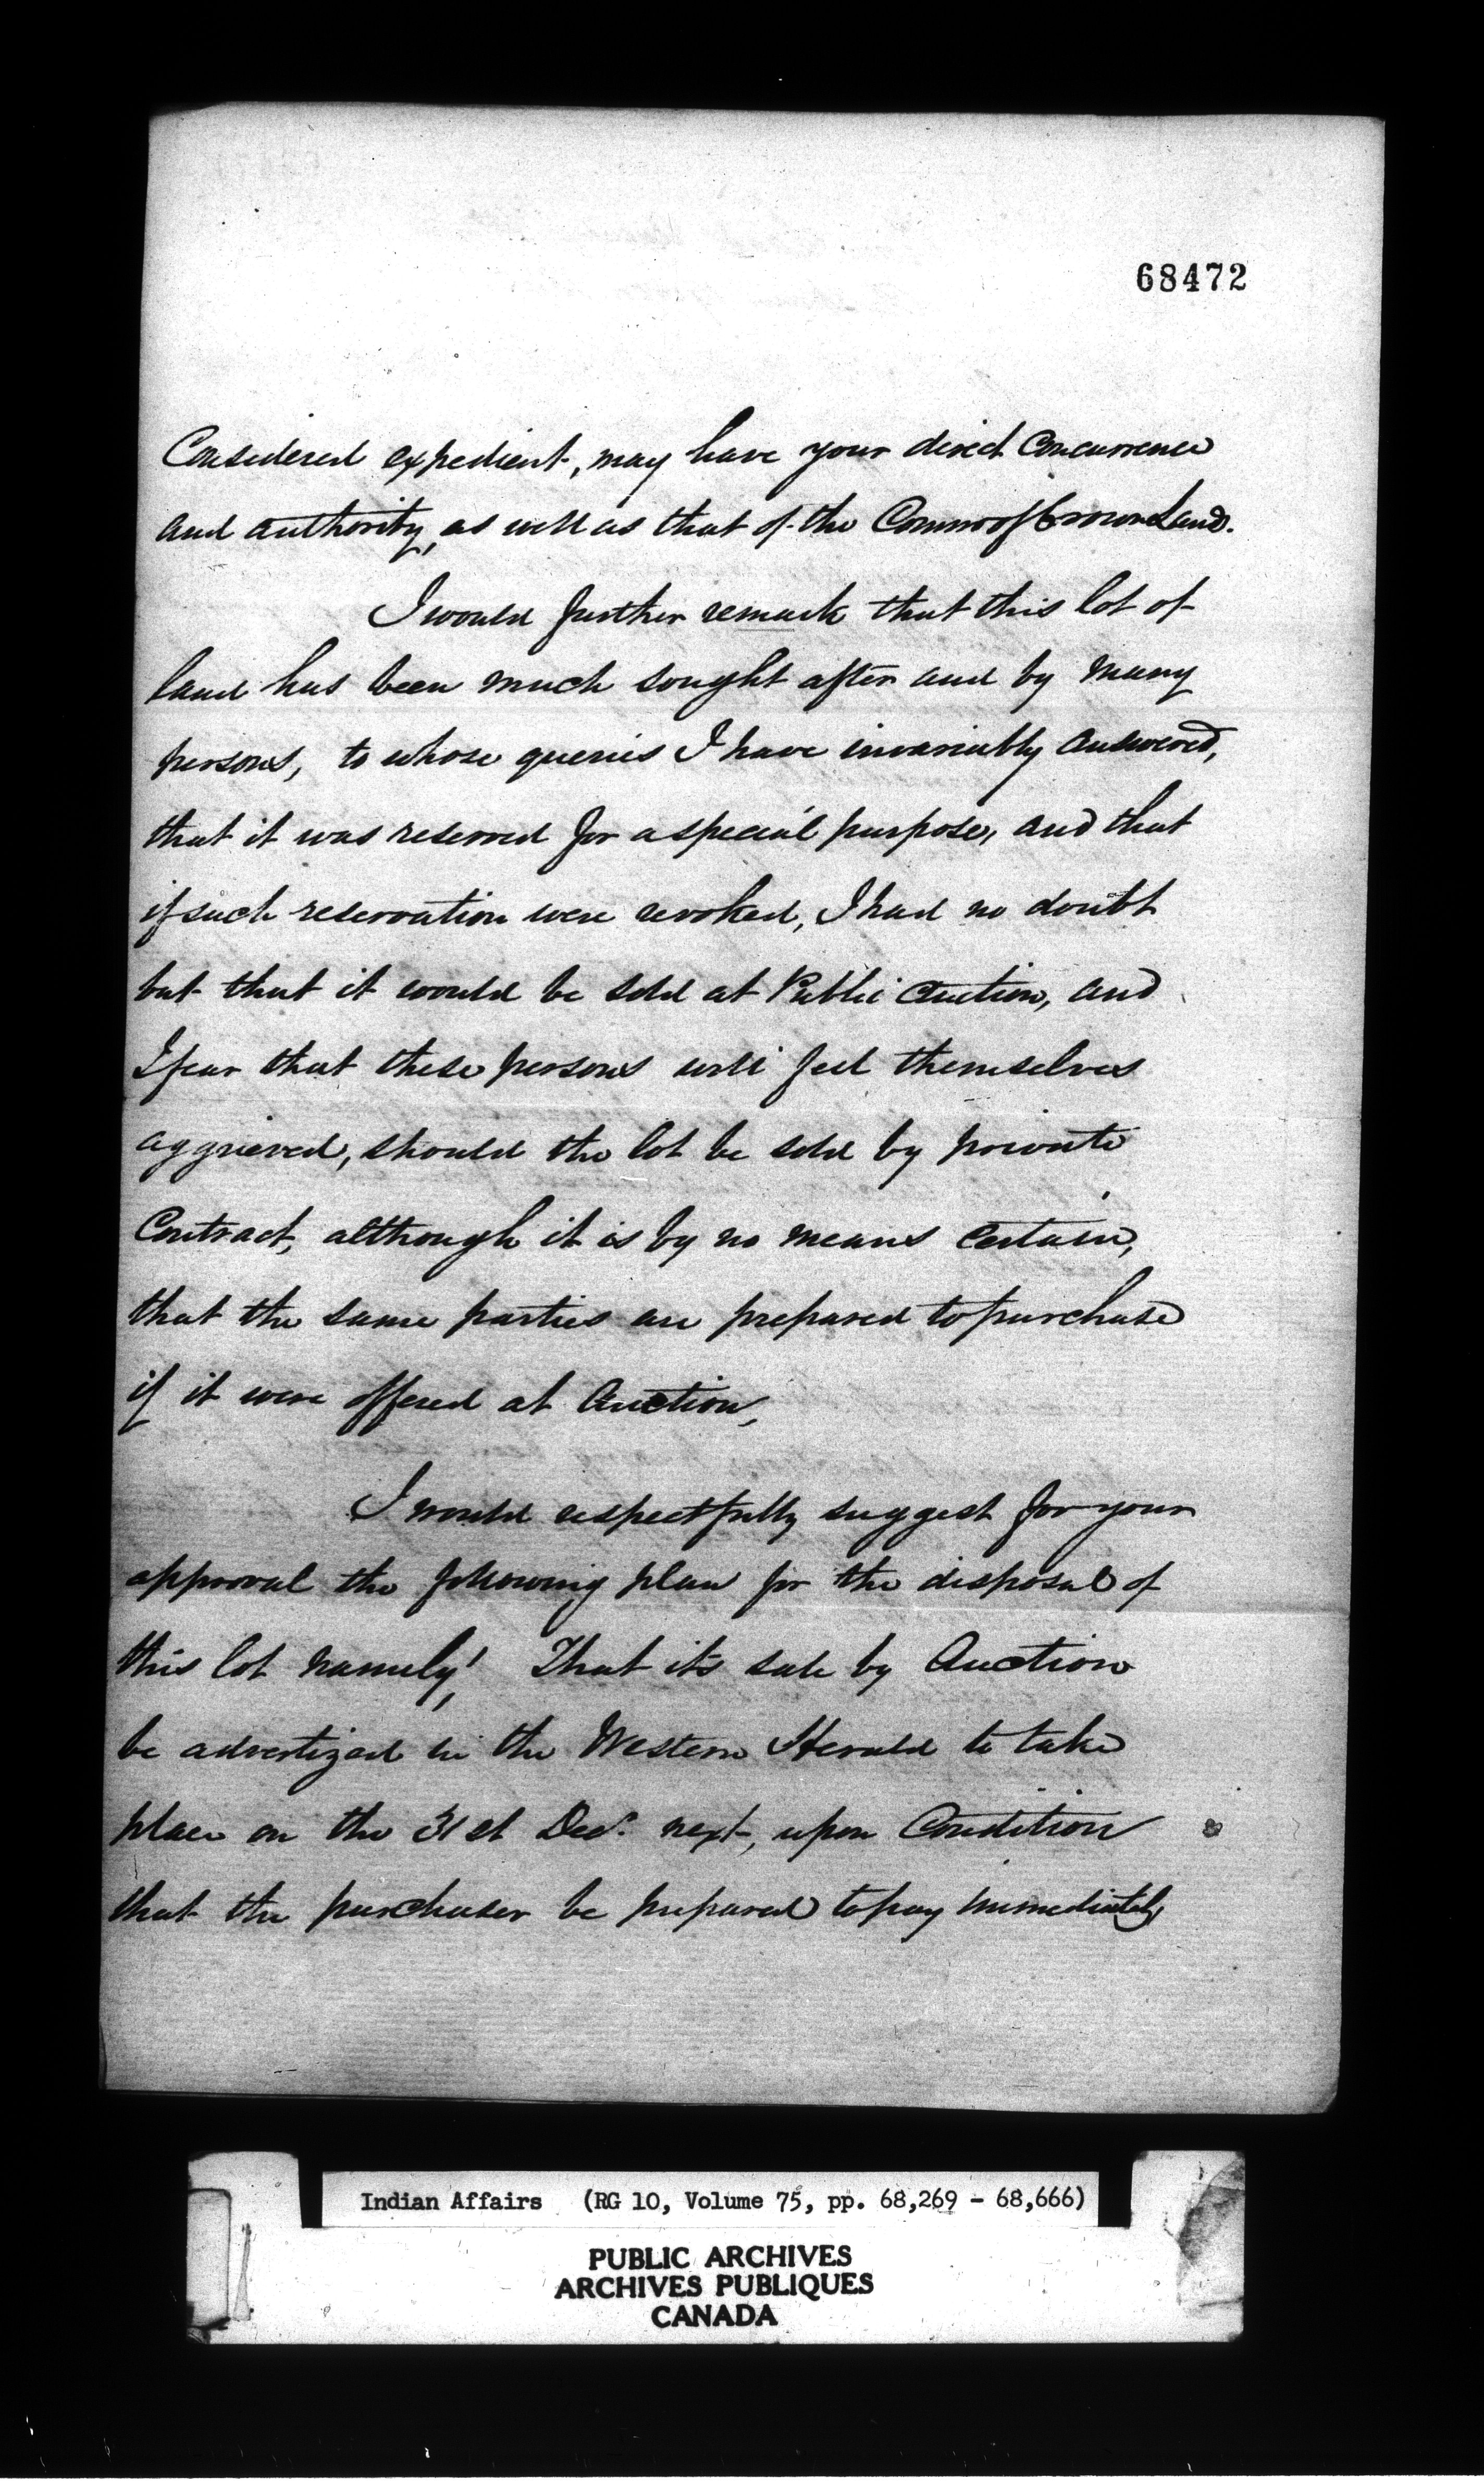 68472
Considered expedient, may have your direct Concurrence
and authority, as well as that of the Commr of Crown Land.
I would further remark that this lot of
land has been much sought after and by many
persons, to whose queries I have invariably answered,
that it was reserved for a special purpose, and that
if such reservation were revoked, I had no doubt
but that it would be sold at Public Auction, and
I fear that these persons will feel themselves
aggrieved, should the lot be sold by private
Contract, although it is by no means Certain,
that the same parties are prepared to purchase
if it were offered at Auction,
I would respectfully suggest for your
approval the following plan for the disposal of
this lot namely! That it's sale by Auction
be advertized in the Western Herald to take
place on the 31st Decr. next, upon Condition
that the purchaser be prepared to pay immediately
Indian Affairs (RG 10, Volume 75, pp. 68,269 - 68,666)
PUBLIC ARCHIVES
ARCHIVES PUBLIQUES
CANADA